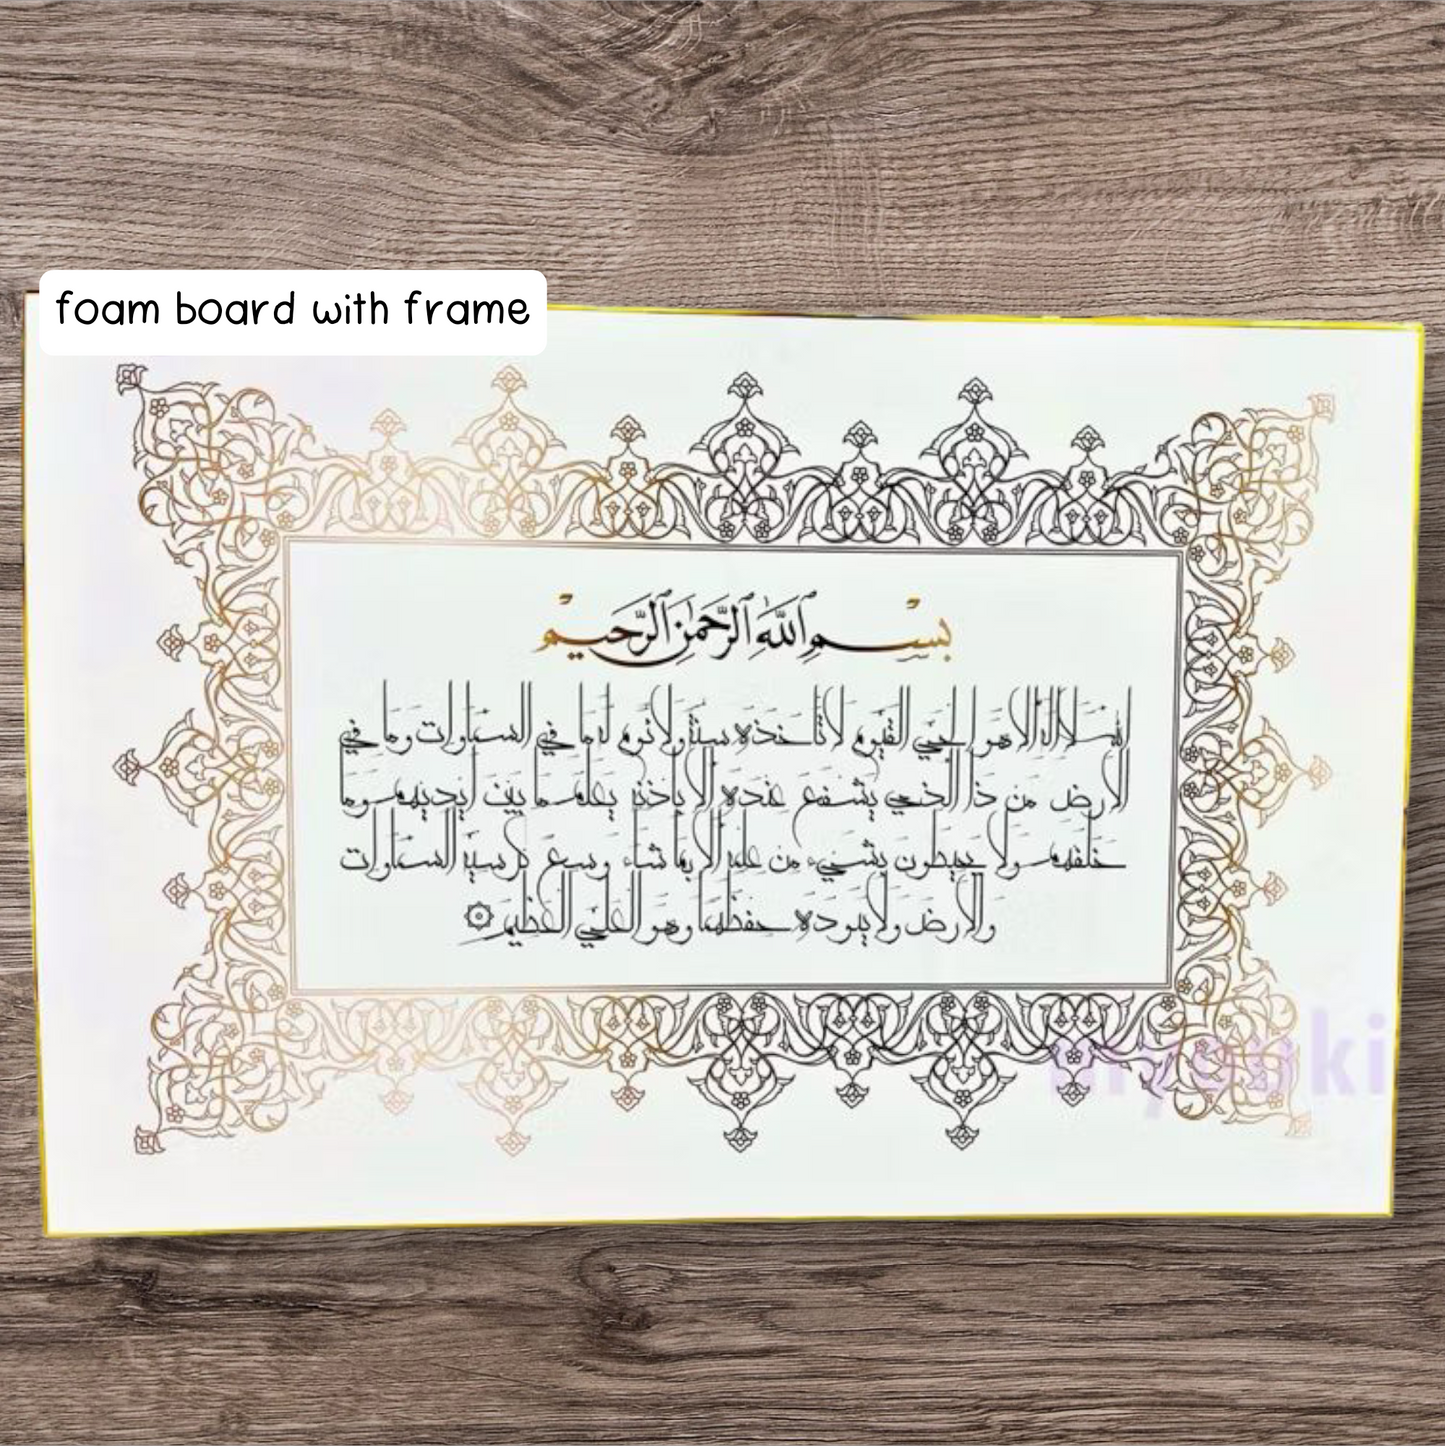 foam board with frame
بِسْمِ ٱللَّهِ ٱلرَّحْمَٰنِ ٱلرَّحِيمِ
الله لا اله الا هو الحي القيوم لا تأخذه سنة ولا نوم له ما في السماوات وما في
الارض من ذا الذي يشفع عنده الا باذنه يعلم ما بين أيديهم وما
خلفهم ولا يحيطون بشيء من علمه الا بما شاء وسع كرسيه السماوات
والارض ولا يوده حفظهما وهو العلي العظيم